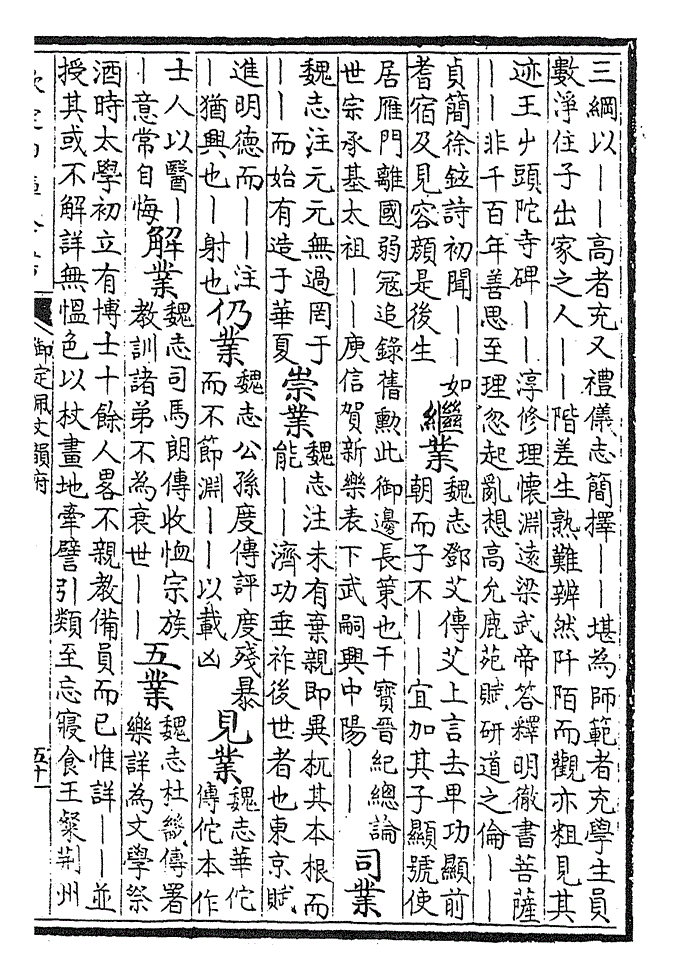 三綱以——高者充又禮儀志簡擇——堪為師範者充學主員
數淨住子出家之人——階差生熟難辨然阡陌而觀亦粗見其
迹王屮頭陀寺碑——淳修理懷淵遠梁武帝答釋明徹書菩薩
——非千百年善思至理忽起亂想高允鹿苑賦研道之倫——
貞簡徐鉉詩初聞——如
耆宿及見容顏是後生
繼業
魏志鄧艾傳艾上言去卑功顯前
朝而子不——宜加其子顯號使
居雁門離國弱冠追錄舊勳此御邊長策也干寶晉紀總論
世宗承基太祖——庾信賀新樂表下武嗣興中陽——
司業
魏志注元元無過罔于
——而始有造于華夏
崇業
魏志注未有棄親即異杌其本根而
能——濟功垂祚後世者也東京賦
進明德而——注
—猶興也—射也
仍業
魏志公孫度傳評度殘暴
而不節淵——以載凶
見業
魏志華佗
傳佗本作
士人以醫—
—意常自悔
解業
魏志司馬朗傳收恤宗族
教訓諸弟不為衰世——
五業
魏志杜畿傳署
樂詳為文學祭
酒時太學初立有博士十餘人畧不親教備員而已惟詳——並
授其或不解詳無慍色以杖畫地牽譬引類至忘寢食王粲荊州
欽定四庫全書
御定佩文韻府
五十一